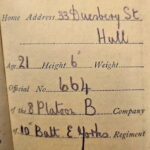 Home Address 33 Duesbery St.
Hull
Age 21 Height 6' Weight
Official No. 664
of the 8 Platoon B Company
of 10th Batt E Yorks. Regiment